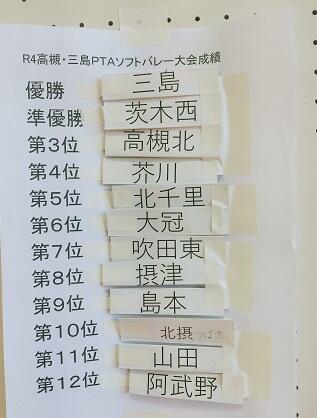 R4高槻・三島PTAソフトバレー大会成績
優勝 三島
準優勝 茨木西
第3位 高槻北
第4位 芥川
第5位 北千里
第6位 大冠
第7位 吹田東
第8位 摂津
第9位 島本
第10位 北摂つばさ
第11位 山田
第12位 阿武野